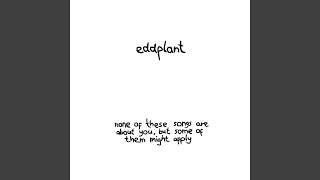 eddplant
none of these songs are
about you, but some of
them might apply